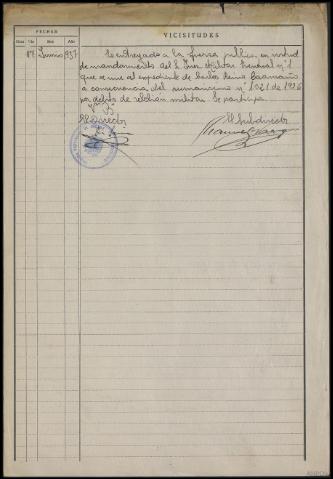 FECHAS
VICISITUDES
Hora Día Mes Año
17 Junio 937
Es entregado a la fuerza pública en virtud
de mandamiento del S. Juez Militar Eventual nº 1
que se une al expediente de
a consecuencia del sumarísimo nº 1021 de 1936
por delito de rebelión militar. Se participa.
Vº Bº
El Director
El Subdirector